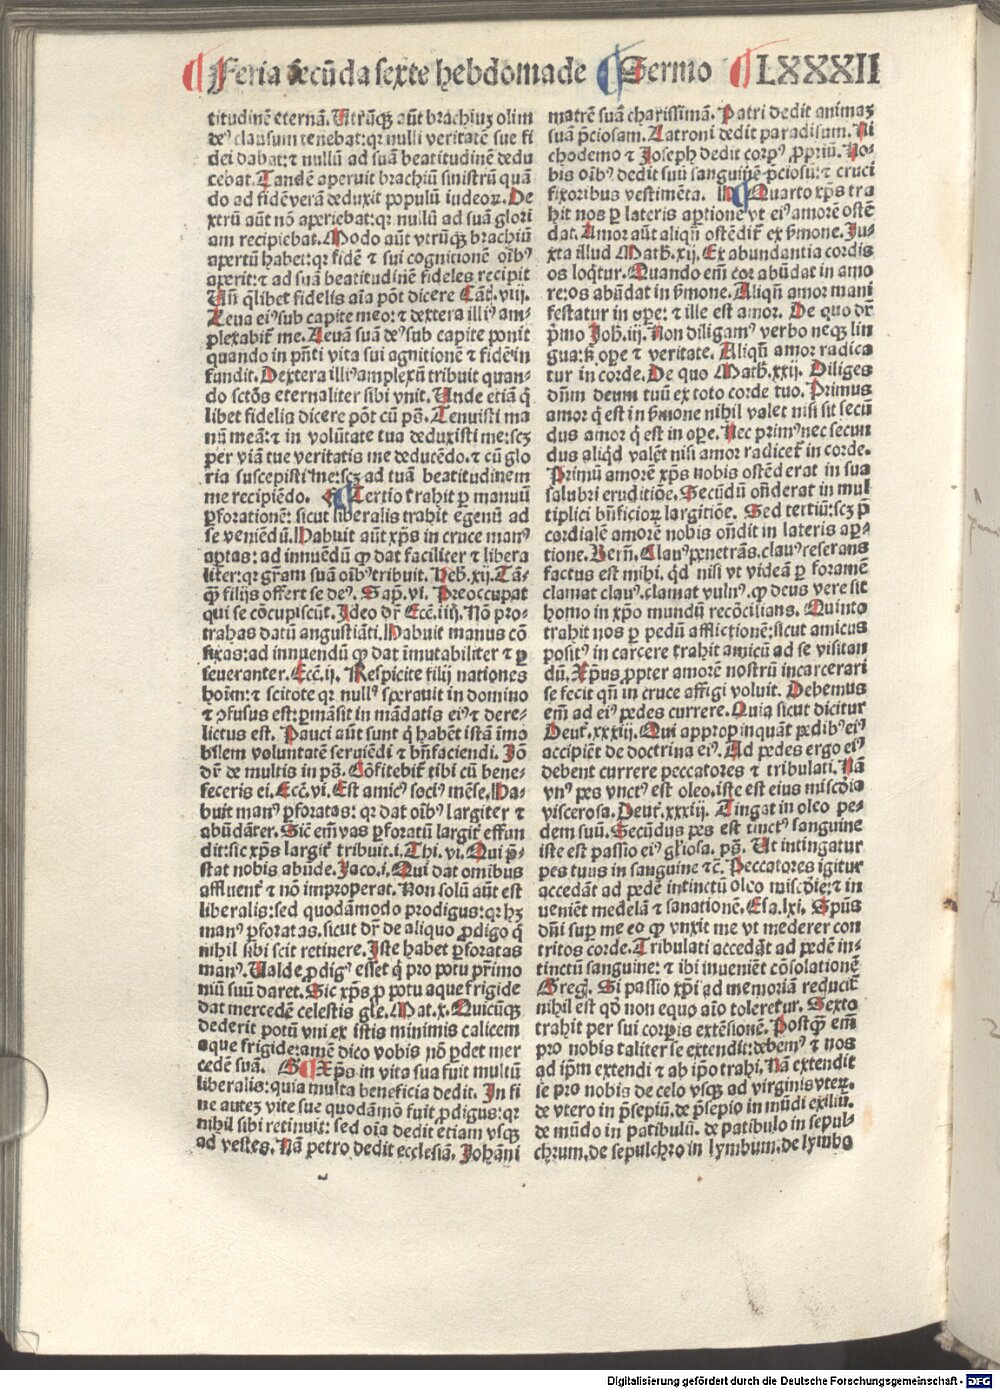 Feria secūda sexte hebdomade Sermo LXXXII
titudinē eternā. Utrūqꝫ aūt brachiuꝫ olim
deꝰ clausum tenebat: qꝛ nulli veritatē sue fi
dei dabat: ⁊ nullū ad suā beatitudinē dedu
cebat. Tandē aperuit brachiū sinistrū quā
do ad fidē verā deduxit populū iudeoꝝ. De
xtrū aūt nō aperiebat: qꝛ nullū ad suā glori
am recipiebat. Modo aūt vtrūqꝫ brachiū
apertū habet: qꝛ fidē ⁊ sui cognitionē oībꝰ
aperit: ⁊ ad suā beatitudinē fideles recipit
Uñ q̄libet fidelis aīa pōt dicere Cāt. viij.
Leua eiꝰ sub capite meo: ⁊ dextera illiꝰ am-
plexabit̄ me. Leuā suā deꝰ sub capite ponit
quando in pn̄ti vita sui agnitionē ⁊ fidē in
fundit. Dextera illiꝰ amplexū tribuit quan-
do sctōs eternaliter sibi vnit. Unde etiā q̄
libet fidelis dicere pōt cū pṡ. Tenuisti ma
nū meā: ⁊ in volūtate tua deduxisti me: scꝫ
per viā tue veritatis me deducēdo. ⁊ cū glo
ria suscepisti me: scꝫ ad tuā beatitudinem
me recipiēdo. Tertio trahit ꝑ manuū
ꝑforationē: sicut liberalis trahit egenū ad
se veniēdū. Habuit aūt xp̄s in cruce manꝰ
aꝑtas: ad innuēdū ꝙ dat faciliter ⁊ libera
liter: qꝛ gr̄am suā oībꝰ tribuit. Heb. xij. Tā-
q̄ filijs offert se deꝰ. Sap. vi. Preoccupat
qui se cōcupiscūt. Ideo dr̄ Ecc̄. iiij. Nō pro-
trahas datū angustiāti. Habuit manus cō
fixas: ad innuendū ꝙ dat īmutabiliter ⁊ ꝑ
seueranter. Ecc̄. ij. Respicite filij nationes
hoīm: ⁊ scitote qꝛ nullꝰ sperauit in domino
⁊ ꝯfusus est: ꝑmāsit in mādatis eiꝰ ⁊ dere-
lictus est. Pauci aūt sunt q̄ habēt istā īmo
bilem voluntatē seruiēdi ⁊ bn̄faciendi. Iō
dr̄ de multis in pṡ. Cōfitebit̄ tibi cū bene-
feceris ei. Ecc̄. vi. Est amicꝰ sociꝰ mēse. Ha-
buit manꝰ ꝑforatas: qꝛ dat oībꝰ largiter ⁊
abūdāter. Sic em̄ vas ꝑforatū largit̄ effun
dit: sic xp̄s largit̄ tribuit. i. Thi. vi. Qui p̄-
stat nobis abūde. Jaco. i. Qui dat omibus
affluent̄ ⁊ nō improperat. Non solū aūt est
liberalis: sed quodāmodo prodigus: qꝛ hꝫ
manꝰ ꝑforatas. sicut dr̄ de aliquo ꝓdigo q̄
nihil sibi scit retinere. Iste habet ꝑforatas
manꝰ. Ualde ꝓdigꝰ esset q̄ pro potu pr̄imo
niū suū daret. Sic xp̄s ꝑ potu aque frigide
dat mercedē celestis gl̄e. Mat. x. Quicūqꝫ
dederit potū vni ex istis minimis calicem
aque frigide: amē dico vobis nō ꝑdet mer
cedē suā. Xp̄s in vita sua fuit multū
liberalis: quia multa beneficia dedit. In fi
ne auteꝫ vite sue quodāmō fuit ꝓdigus: qꝛ
nihil sibi retinuit: sed oīa dedit etiam vsqꝫ
ad vestes. Nā petro dedit ecclesiā. Johāni
matrē suā charissimā. Patri dedit animaꝫ
suā p̄ciosam. Latroni dedit paradisum. Ni
chodemo ⁊ Joseph dedit corpꝰ ꝓpriū. No-
bis oībꝰ dedit suū sanguinē p̄ciosū: ⁊ cruci
fixoribus vestimēta. Quarto xp̄s tra
hit nos ꝑ lateris aꝑtionē vt eiꝰ amorē ostē
dat. Amor aūt aliqn̄ ostēdit̄ ex ẜmone. Ju-
xta illud Math. xij. Ex abundantia cordis
os loqͥtur. Quando em̄ cor abūdat in amo
re: os abūdat in ẜmone. Aliqn̄ amor mani
festatur in oꝑe: ⁊ ille est amor. De quo dr̄
pͥmo Joh. iij. Non diligamꝰ verbo neqꝫ lin
gua: sꝫ oꝑe ⁊ veritate. Aliqn̄ amor radica
tur in corde. De quo Math. xxij. Diliges
dn̄m deum tuū ex toto corde tuo. Primus
amor q̄ est in ẜmone nihil valet nisi sit secū
dus amor q̄ est in oꝑe. Nec primꝰ nec secun
dus aliqͥd valēt nisi amor radicet̄ in corde.
Primū amorē xp̄s nobis ostēderat in sua
salubri eruditiōe. Secūdū oñderat in mul
tiplici bn̄ficioꝝ largitiōe. Sed tertiū: scꝫ p̄
cordialē amorē nobis oñdit in lateris aꝑ-
tione. Bern̄. Clauꝰ penetrās. clauꝰ reserans
factus est mihi. qͥd nisi vt videā ꝑ foramē
clamat clauꝰ. clamat vulnꝰ. ꝙ deus vere sit
homo in xp̄o mundū recōcilians. Quinto
trahit nos ꝑ pedū afflictionē: sicut amicus
positꝰ in carcere trahit amicū ad se visitan
dū. Xp̄us ꝓpter amorē nostrū incarcerari
se fecit qn̄ in cruce affigi voluit. Debemus
em̄ ad eiꝰ pedes currere. Quia sicut dicitur
Deut̄. xxxiij. Qui appropinquāt pedibꝰ eiꝰ
accipiēt de doctrina eiꝰ. Ad pedes ergo eiꝰ
debent currere peccatores ⁊ tribulati. Nā
vnꝰ pes vnctꝰ est oleo. iste est eius misc̄dia
viscerosa. Deut̄. xxxiij. Tingat in oleo pe-
dem suū. Secūdus pes est tinctꝰ sanguine
iste est passio eiꝰ gl̄iosa. pṡ. Ut intingatur
pes tuus in sanguine ⁊c̄. Peccatores igitur
accedāt ad pedē intinctū oleo misc̄die: ⁊ in
ueniēt medelā ⁊ sanationē. Esa. lxi. Spūs
dn̄i suꝑ me eo ꝙ vnxit me vt mederer con
tritos corde. Tribulati accedāt ad pedē in-
tinctū sanguine: ⁊ ibi inueniēt cōsolationē
Greḡ. Si passio xp̄i ad memoriā reducit̄
nihil est qd̄ non equo aīo toleretur. Sexto
trahit per sui corꝑis extēsionē. Postq̄ em̄
pro nobis taliter se extendit: debemꝰ ⁊ nos
ad ip̄m extendi ⁊ ab ip̄o trahi. Nā extendit
se pro nobis de celo vsqꝫ ad virginis vteꝝ.
de vtero in p̄sepiū. de p̄sepio in mūdi exiliū.
de mūdo in patibulū. de patibulo in sepul-
chrum. de sepulchro in lymbum. de lymbo
Digitalisierung gefördert durch die Deutsche Forschungsgemeinschaft - DFG